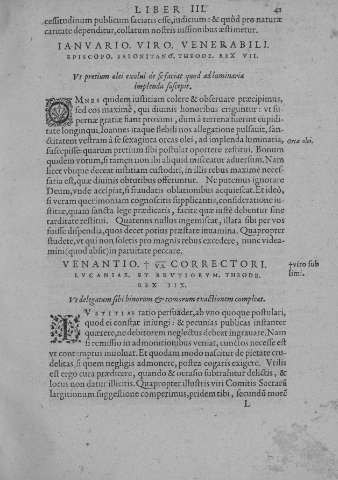 LIBER III. 41
cessitudinum publicum satiatis esse, iudicium: & quod pro naturæ
caritate dependitur, collatum nostris iussionibus æstimetur.
IANVARIO. VIRO. VENERABILI.
EPISCOPO. SALONITANO. THEODE. REX VII.
Vt pretium olei exolui de se faciat quod ad luminaria
implenda suscepit.
OMNES quidem iustitiam colere & obseruare præcipimus,
sed eos maximè, qui diuinis honoribus eriguntur: vt supernæ
gratiæ fiant proximi, dum à terrena fuerint cupiditate
longinqui, Ioannes itaque flebili nos allegatione pulsauit, sanctitatem
vestram à se sexaginta orcas olei, ad implenda luminaria,
suscepisse: quarum pretium sibi postulat oportere restitui. Bonum
quidem votum, si tamen non ibi aliquid misceatur aduersum. Nam
licet vbique deceat iustitiam custodiri, in illis rebus maximè necessaria
est, quæ diuinis obtutibus offeruntur. Ne putemus ignorare
Deum, vnde accipiat, si fraudatis oblationibus acquiescat. Et ideò,
si veram querimoniam cognoscitis supplicantis, consideratione iustitiæ,
quam sancta lege prædicatis, facite quæ iustè debentur sine
tarditate restitui. Quatenus nullus ingemiscat, illata sibi per vos
fuisse dispendia, quos decet potius præstare iuuamina. Quapropter
studete, vt qui non soletis pro magnis rebus excedere, nunc videamini
(quod absit) in paruitate peccare.
orca olei.
VENANTIO. † VS. CORRECTORI.
LVCANIAE. ET BRVTIORVM. THEODE.
REX IIX.
† viro sublimi.
Vt delegatam sibi binorum & ternorum exactionem compleat.
IVSTITIAE ratio persuadet, ab vno quoque postulari,
quod ei constat iniungi: & pecunias publicas instanter
quærere, ne debitorem neglectus debeat ingrauare. Nam
si remissio in admonitionibus veniat, cunctos necesse est
vt contemptus inuoluat. Et quodam modo nascitur de pietate crudelitas,
si quem negligis admonere, postea cogaris exigere. Vtilis
est ergo cura prædicere, quando & occasio subtrahitur delictis, &
locus non datur illicitis. Quapropter illustris viri Comitis Sacrarũ
largitionum suggestione comperimus, pridem tibi, secundũ morẽ
L